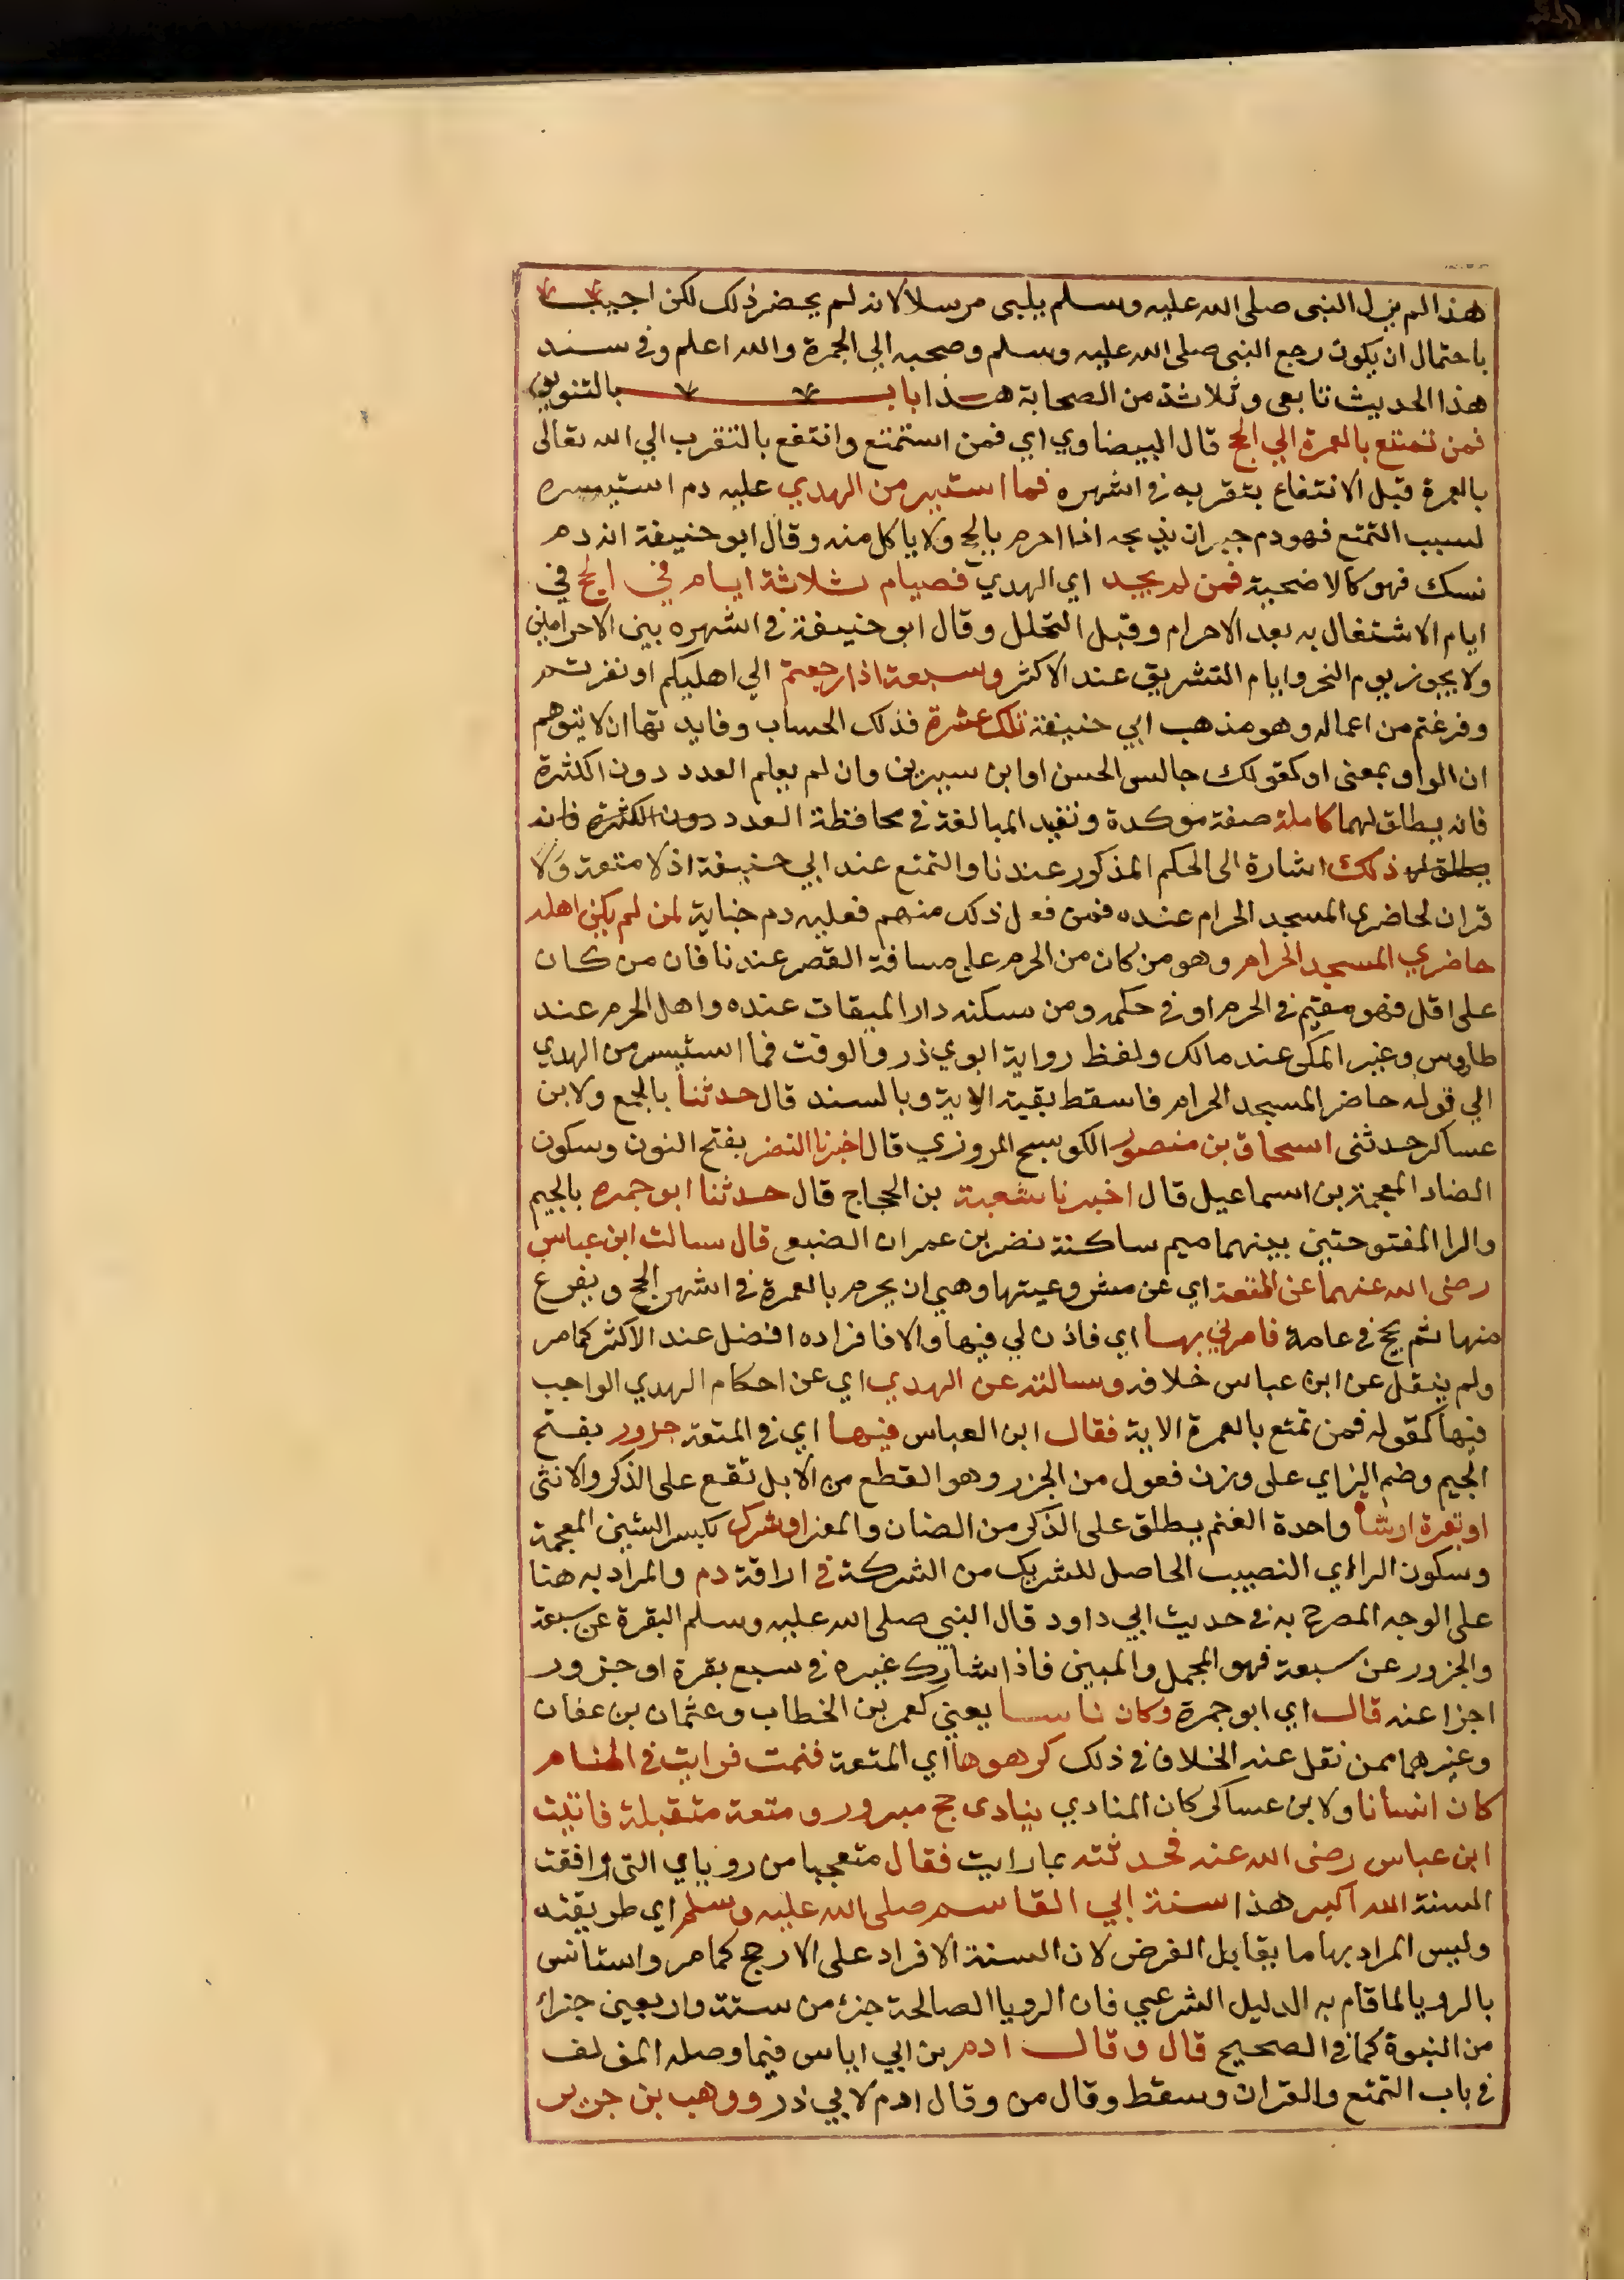 هذا لم يزل النبى صلى الله عليه وسلم يلبى مرسلا لانه لم يحضر ذلك لكن اجيب
باحتمال ان يكون رجع النبى صلى الله عليه وسلم وصحبه الي الجمرة والله اعلم وفى سند
هذا الحديث تابعى وثلاثة من الصحابة هـذا باب بالتنوين
فمن تمتع بالعمرة الي الحج قال البيضاوي اي فمن استمتع وانتفع بالتقرب الي الله تعالى
بالعمرة قبل الانتفاع بتقربه فى اشهره فما استيسر من الهدي عليه دم استيسره
لسبب التمتع فهو دم جبران يذبحه اذا احرم بالحج ولا ياكل منه وقال ابو حنيفة انه دم
نسك فهو كالاضحية فمن لم يجد اي الهدي فصيام ثلاثة ايام في الحج في
ايام الاشتغال به بعد الاحرام وقبل التحلل وقال ابو حنيفة فى اشهره بين الاحرامين
ولا يجوز يوم النحر وايام التشريق عند الاكثر وسبعة اذا رجعتم الي اهليكم او نفرتم
وفرغتم من اعماله وهو مذهب ابي حنيفة تلك عشرة فذلك الحساب وفايدتها ان لا يتوهم
ان الواو بمعنى او كقولك جالس الحسن او ابن سيرين وان لم يعلم العدد دون الكثرة
فانه يطلق لهما كاملة صفة موكدة وتفيد المبالغة فى محافظة العدد دون الكثرة فانه
يطلق لها ذلك اشارة الى الحكم المذكور عندنا والتمتع عند ابي حنيفة اذ لا متعة ولا
قران لحاضري المسجد الحرام عنده فمن فعل ذلك منهم فعليه دم جناية لمن لم يكن اهله
حاضري المسجد الحرام وهو من كان من الحرم على مسافة القصر عندنا فان من كان
على اقل فهو مقيم فى الحرم او فى حكمه ومن سكنه دار الميقات عنده واهل الحرم عند
طاوس وغير المكى عند مالك ولفظ رواية ابوي ذر والوقت فما استيسر من الهدي
الي قوله حاضر المسجد الحرام فاسقط بقية الاية وبالسند قال حدثنا بالجمع ولابن
عساكر حدثنى اسحاق بن منصور الكوسج المروزي قال اخبرنا النضر بفتح النون وسكون
الضاد المعجمة بن اسماعيل قال اخبرنا شعبة بن الحجاج قال حدثنا ابو جمره بالجيم
والرا المفتوحتين بينهما ميم ساكنة نضر بن عمران الضبعى قال سالت ابن عباس
رضى الله عنهما عن المتعة اي عن مشروعيتها وهي ان يحرم بالعمرة فى اشهر الحج ويفرغ
منها ثم يحج فى عامه فامرني بها اي فاذن لي فيها والا فافراده افضل عند الاكثر كما مر
ولم ينقل عن ابن عباس خلافه وسالته عن الهدي اي عن احكام الهدي الواجب
فيها كقوله فمن تمتع بالعمرة الاية فقال ابن العباس فيها اي فى المتعة جزور بفتح
الجيم وضم الزاي على وزن فعول من الجزر وهو القطع من الابل تقع على الذكر والانثى
او بقرة او شاة واحدة الغنم يطلق على الذكر من الضان والمعز او شرك بكسر الشين المعجمة
وسكون الراء اي النصيب الحاصل للشريك من الشركة في اراقة دم والمراد به هنا
على الوجه المصرح به فى حديث ابي داود قال النبي صلى الله عليه وسلم البقرة عن سبعة
والجزور عن سبعة فهو المجمل والمبين فاذا شارك غيره فى سبع بقرة او جزور
اجزا عنه قال اي ابو جمرة وكان ناسا يعني كعمر بن الخطاب وعثمان بن عفان
وغيرهما ممن نقل عنه الخلاف فى ذلك كرهوها اي المتعة فنمت فرايت في المنام
كان انسانا ولابن عساكر كان المنادي ينادى حج مبرور ومتعة متقبلة فاتيت
ابن عباس رضى الله عنه فحدثته بما رايت فقال متعجبا من روياي التى وافقت
السنة الله اكبر هذا سنة ابي القاسم صلى الله عليه وسلم اي طريقته
وليس المراد بها ما يقابل الفرض لان السنة الافراد على الارجح كما مر واستانس
بالرويا لما قام به الدليل الشرعي فان الرويا الصالحة جزء من ستة واربعين جزاء
من النبوة كما فى الصحيح قال وقال ادم بن ابي اياس فيما وصله المولف
فى باب التمتع والقران وسقط وقال من وقال ادم لابي ذر ووهب بن جرير